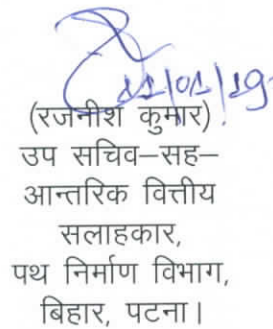 11/01/19
(रजनीश कुमार)
उप सचिव–सह–
आन्तरिक वित्तीय
सलाहकार,
पथ निर्माण विभाग,
बिहार, पटना।